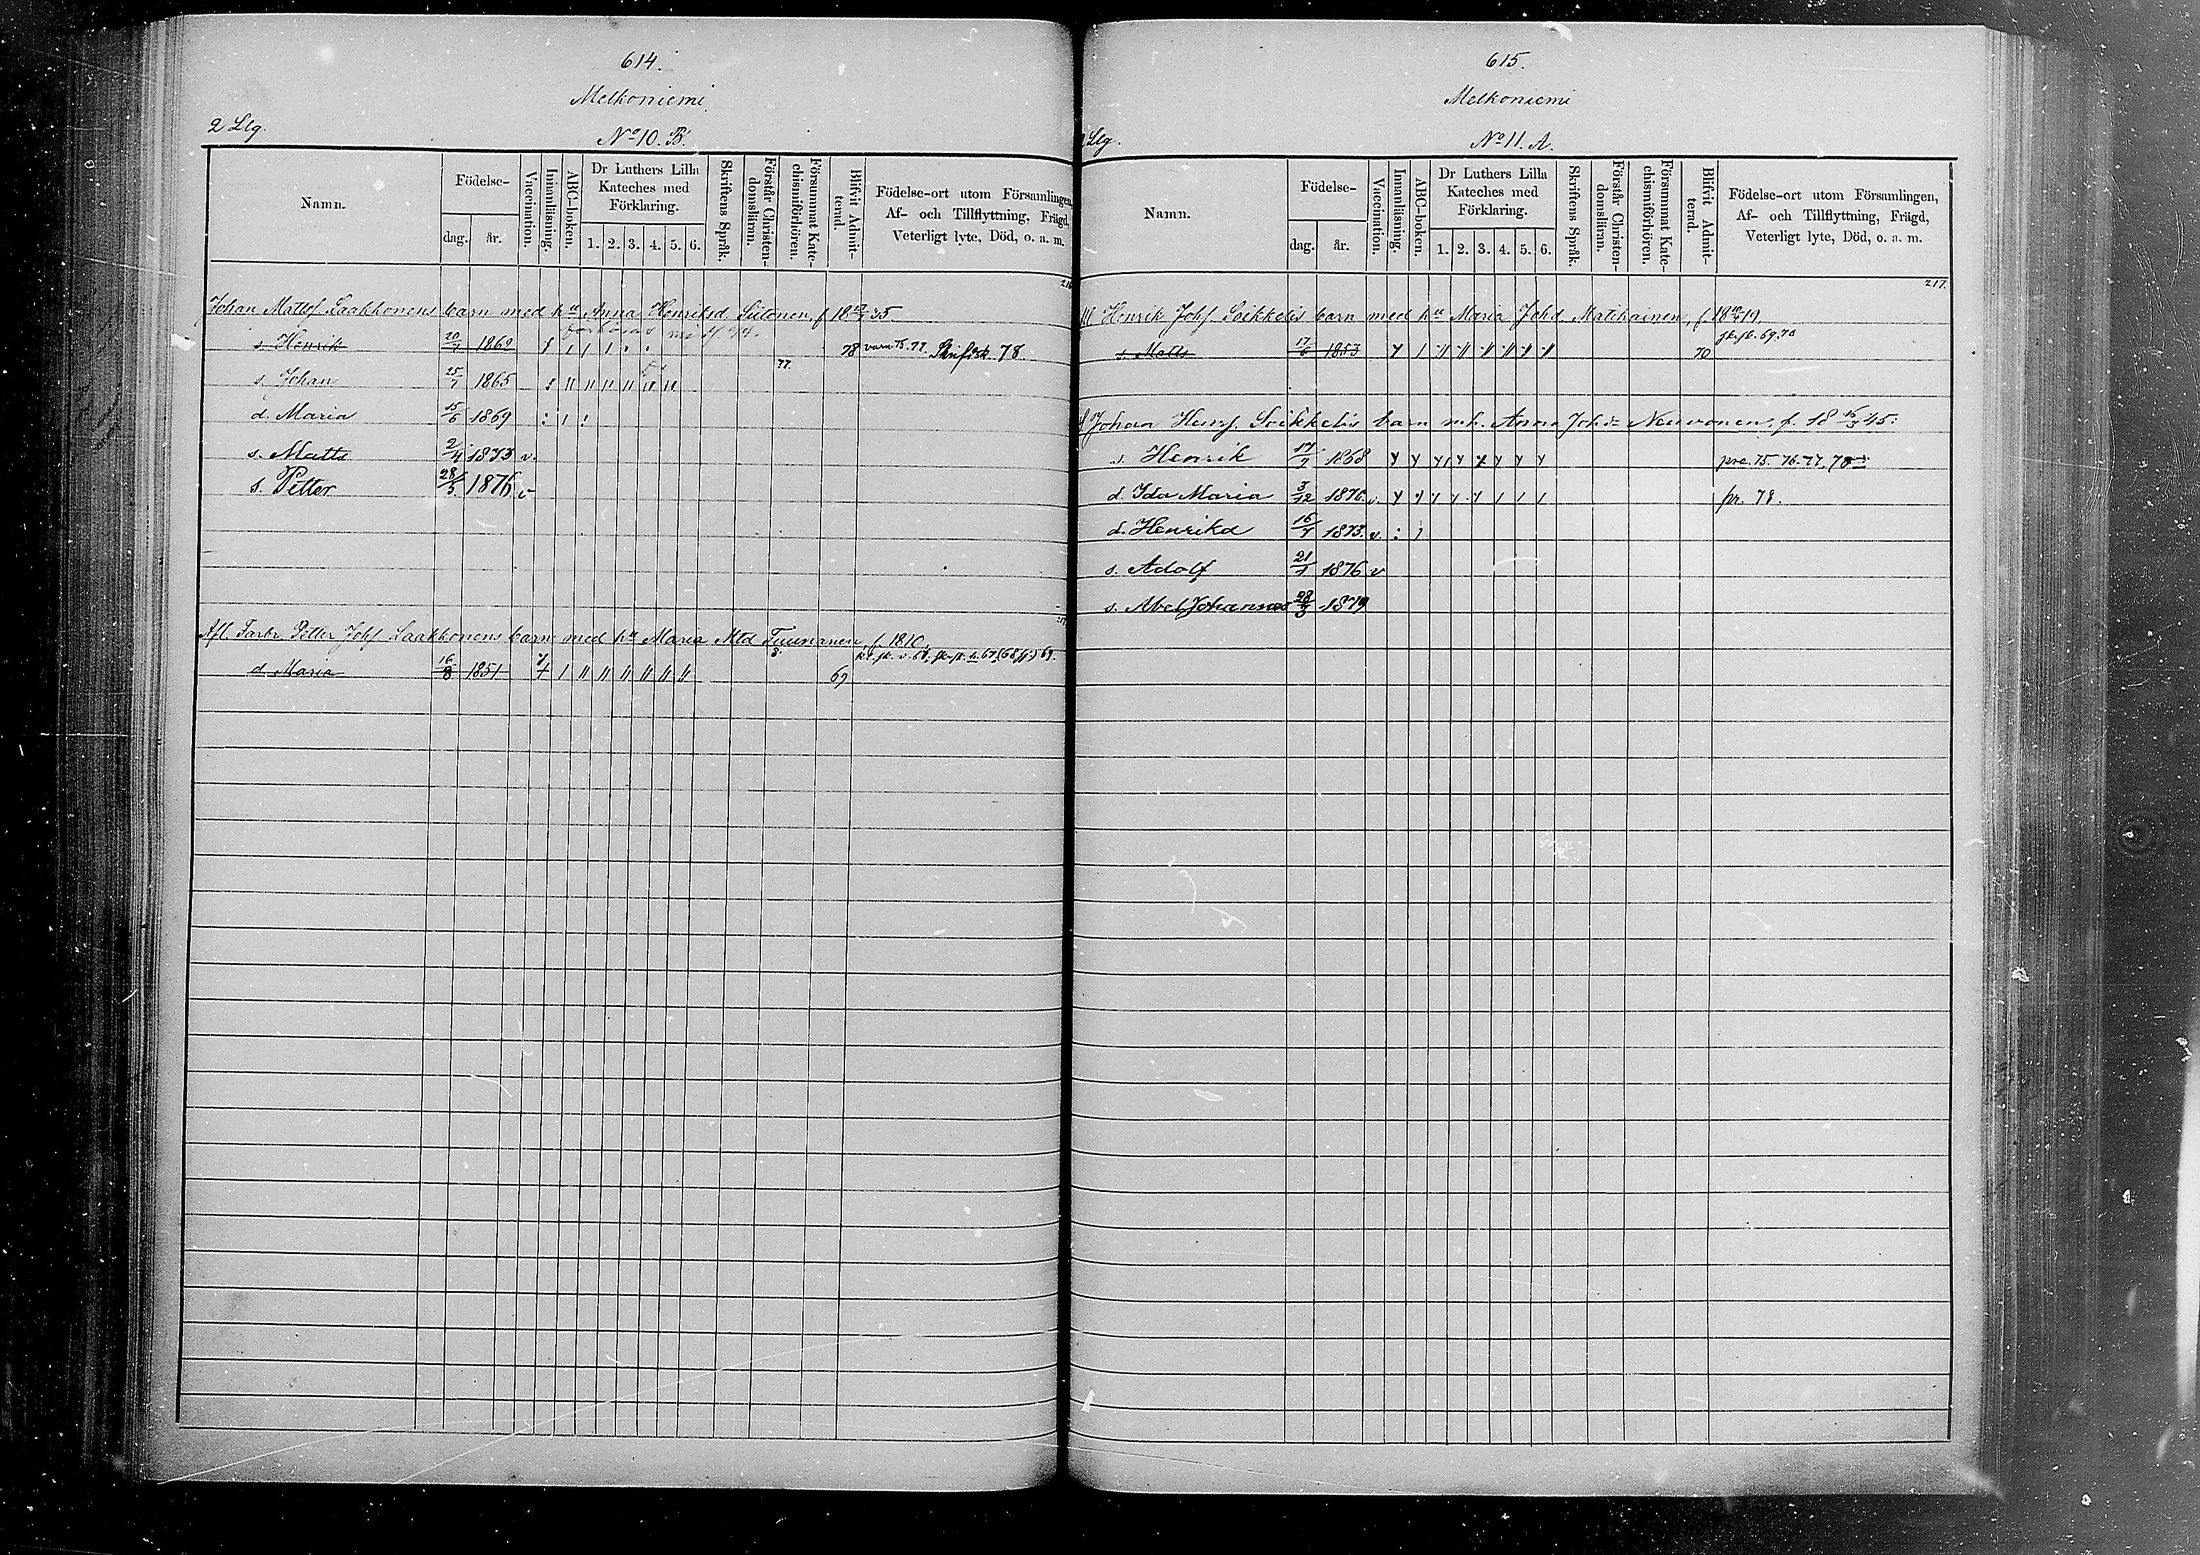 614.
Melkoniemi
2 Llg.
No 10. B.
Namn.
Födelse-
dag.
år.
Vaccination.
Innanläsning.
ABC-boken.
Dr Luthers Lilla
Kateches med
Förklaring.
1. 2. 3. 4. 5. 6.
Skriftens Språk.
Förstår Christen-
domsläran.
Försummat Kate-
chismiförhören.
Blifvit Admit-
terad.
Födelse-ort utom Församlingen,
Af- och Tillflyttning, Frägd,
Veterligt lyte, Död, o. a. m.
Johan Mattsf. Laakkonens barn med hu Anna Henriksd Siitonen, f 18 35.
s. Henrik 20/7 1862 78 varn 75.77. 78.
s. Johan 25/7 1865 77.
d. Maria 15/6 1869
s. Matts 2/4 1873 v.
s. Petter 28/5 1876 v
Afl. Farbr Petter Johf Laakkonens barn med hu Maria Mtd Tuunanen, f 1810,
d. Maria 16/8 1851 69
615.
Melkoniemi
Llg.
No 11. A.
Namn.
Födelse-
dag.
år.
Vaccination.
Innanläsning.
ABC-boken.
Dr Luthers Lilla
Kateches med
Förklaring.
1. 2. 3. 4. 5. 6.
Skriftens Språk.
Förstår Christen-
domsläran.
Försummat Kate-
chismiförhören.
Blifvit Admit-
terad.
Födelse-ort utom Församlingen,
Af- och Tillflyttning, Frägd,
Veterligt lyte, Död, o. a. m.
217.
Henrik Johf Soikkelis barn med hu Maria Johd Matikainen, f 18 19,
s. Matts 17/6 1853 70 69.70
Johan Henrf. Soikkelis barn m.h. Anna Johdr Neuvonen, f. 18 16/3 45:
s. Henrik 17/7 1868 pre. 75. 76. 77. 78
d. Ida Maria 3/12 1870 v. pr. 78.
d. Henrika 16/7 1873. v.
s. Adolf 21/1 1876 v
s. Abel Johannes 28/3 1879